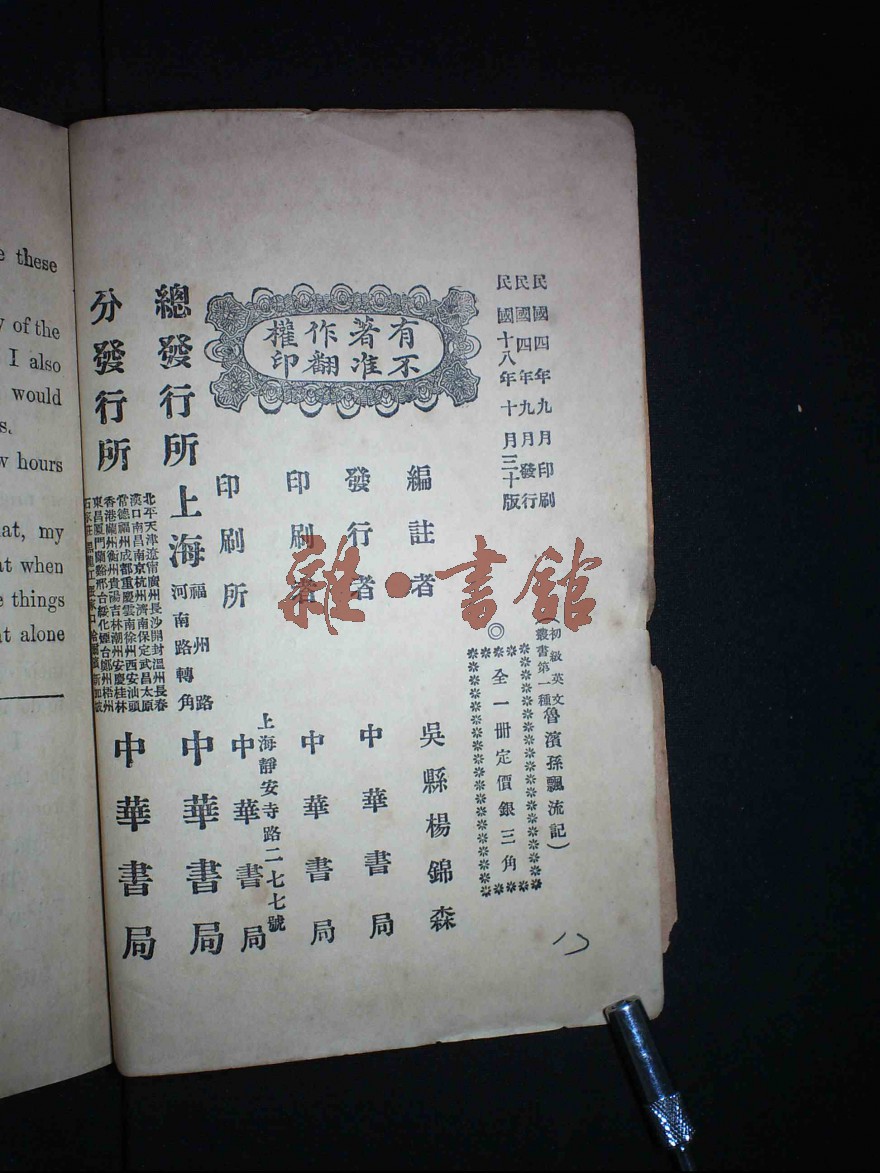 e these
y of the
I also
would
s.
w hours
at, my
at when
e things
t alone
民國四年九月印刷
民國四年九月發行
民國十八年十月三十版
有著作權
不准翻印
(初級英文叢書第一種魯濱孫飄流記)
◎全一冊定價銀三角
編註者 吳縣楊錦森
發行者 中華書局
印刷者 中華書局
印刷所 上海靜安寺路二七七號 中華書局
總發行所 上海福州路河南路轉角 中華書局
分發行所 中華書局
北平天津遼甯廣州長沙開封溫州長春
漢口南昌南京杭州濟南保定武昌太原
常德福州成都重慶雲南徐州西安汕頭
香港蘭州衡州貴陽吉林潮州安慶桂林
雜·書館